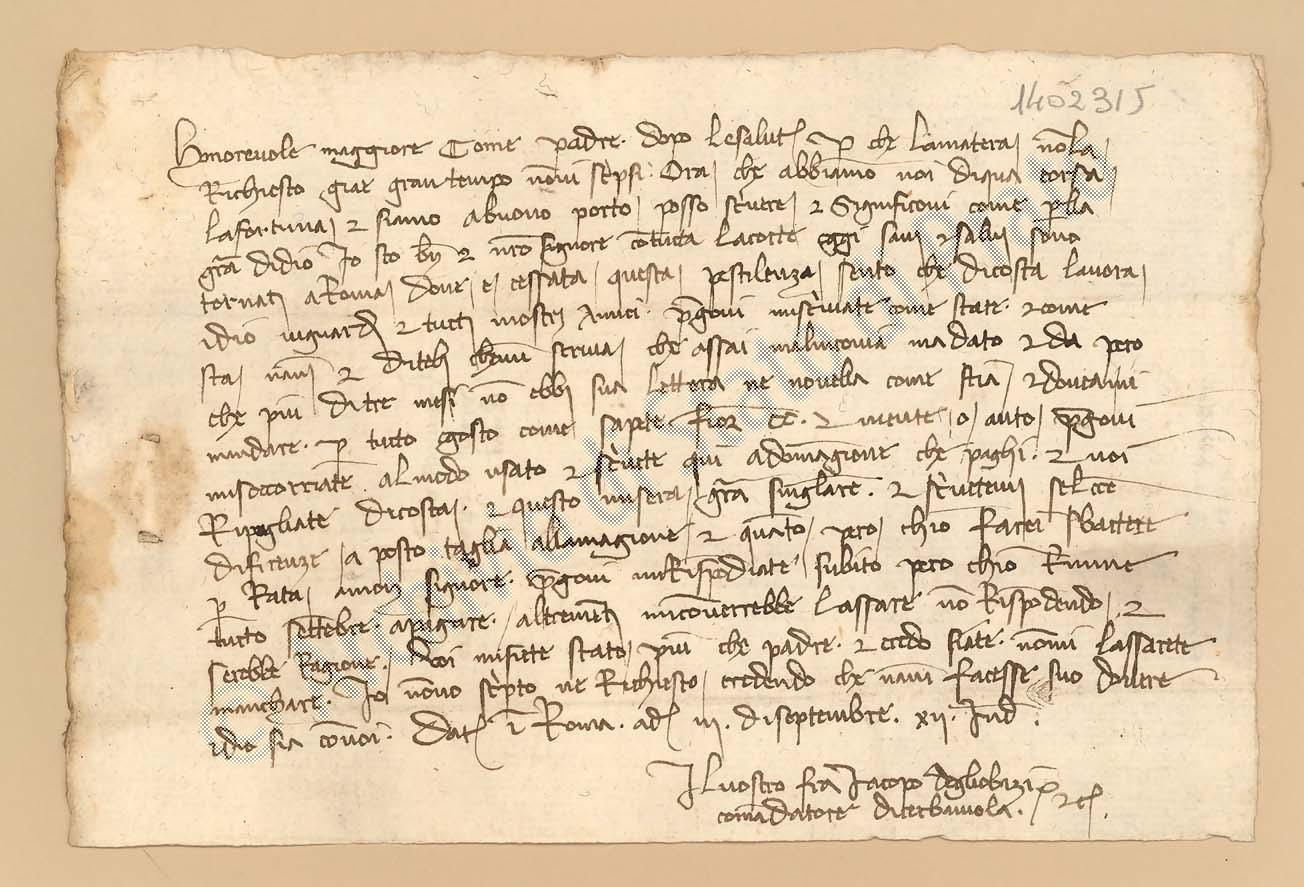 1402315
Honorevole maggiore Come padre. dopo lesalut p che lamatera nōla
Richiesto gia gran tempo nōvi sc̄psi. Ora che abbiamo noi diqua corsa
lafortuna 2 siamo abuono porto posso sc̄vere 2 Significovi come p̄lla
gr̄a didio Io sto bn̄ 2 nr̄o signore cōtucta lacorte ggi sani 2 salvi sono
tornati aRoma dove e cessata questa pestilenza sento che dicosta lavora
idio viguardi 2 tucti nostri Amici. p̄govi misc̄viate come state. 2 come
sta nāni 2 Diteli chemi scriva che assai malinconia madato 2 da pero
che piu ditre mesi nō ebbi sua lettera ne novella come stia 2 doveami
mandare. p tutto gosto come sapete fior CC. 2 niente o auto p̄govi
misoccorriate almodo usato 2 sc̄vete qui adomāgione che paghi. 2 voi
Ripigliate dicosta. 2 questo misera gr̄a singlare. 2 sc̄vetemi selcce
dificenze a posto taglia allamagione 2 quāto pero chio facci sbattere
p̄ Rata amonsignore. p̄govi miRispōdiate subito pero chio
tucto settēbre. altrementi micōverrebbe lassare nō Rispōdendo. 2
serebbe Ragione. Voi misiete stato piu che padre. 2 credo siate. nōmi lassarete
manchare. Io nōno sc̄pto ne Richiesto credendo che nāni facesse suo dovere
idio sia cōvoi. Dat ī Roma. adi iii. diseptembre. xii. Ind.
Ilvostro fra Iacopo degliobizi p̄
comādatore 2c.